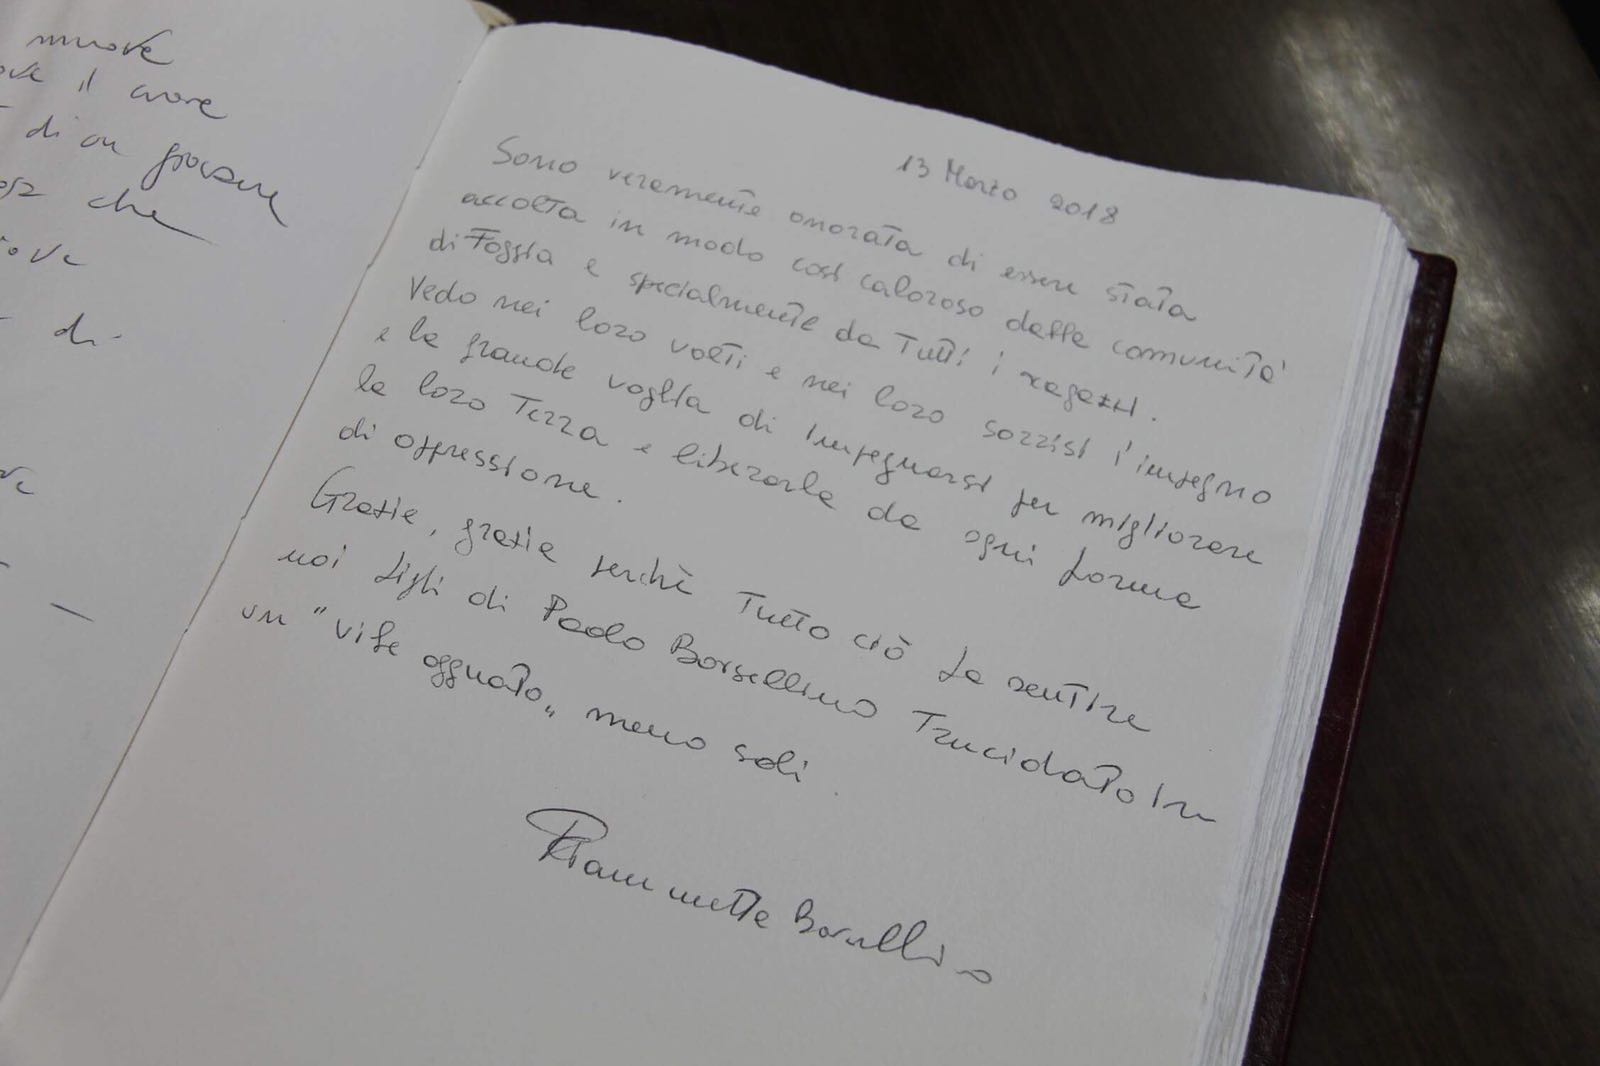 muove
il cuore
di un giovane
che
di
13 Marzo 2018
Sono veramente onorata di essere stata
accolta in modo così caloroso dalla comunità
di Foggia e specialmente da tutti i ragazzi.
Vedo nei loro volti e nei loro sorrisi l'impegno
e la grande voglia di impegnarsi per migliorare
la loro Terra e liberarla da ogni forma
di oppressione.
Grazie, grazie perchè tutto ciò fa sentire
noi figli di Paolo Borsellino trucidato in
un "vile agguato" meno soli.
Fiammetta Borsellino